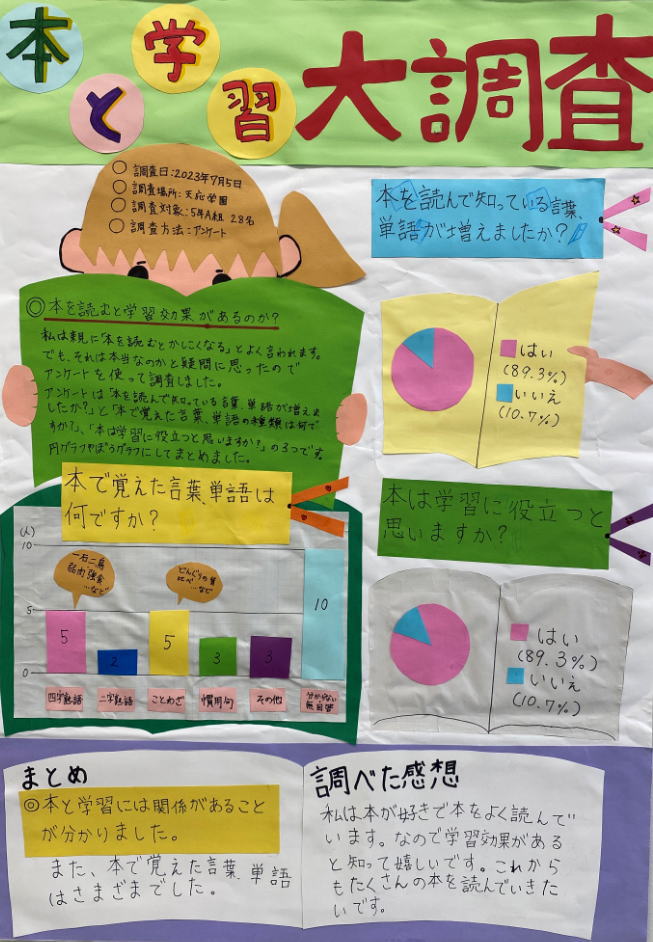 本と学習大調査
○調査日:2023年7月5日
○調査場所:天応学園
○調査対象:5年A組 28名
○調査方法:アンケート
◎本を読むと学習効果があるのか?
私は親に「本を読むとかしこくなる」とよく言われます。
でも、それは本当なのかと疑問に思ったので
アンケートを使って調査しました。
アンケートは「本を読んで知っている言葉、単語が増えま
したか?」と「本で覚えた言葉、単語の種類は何で
すか?」、「本は学習に役立つと思いますか?」の3つです。
円グラフやぼうグラフにしてまとめました。
本を読んで知っている言葉、
単語が増えましたか?
はい
(89.3%)
いいえ
(10.7%)
本で覚えた言葉、単語は
何ですか?
(人)
10
5
0
一石二鳥
弱肉強食
…など
どんぐりの背
比べ
…など
5
2
5
3
3
10
四字熟語
二字熟語
ことわざ
慣用句
その他
分からない
無回答
本は学習に役立つと
思いますか?
はい
(89.3%)
いいえ
(10.7%)
まとめ
◎本と学習には関係があること
が分かりました。
また、本で覚えた言葉、単語
はさまざまでした。
調べた感想
私は本が好きで本をよく読んで
います。なので学習効果がある
と知って嬉しいです。これから
もたくさんの本を読んでいきた
いです。